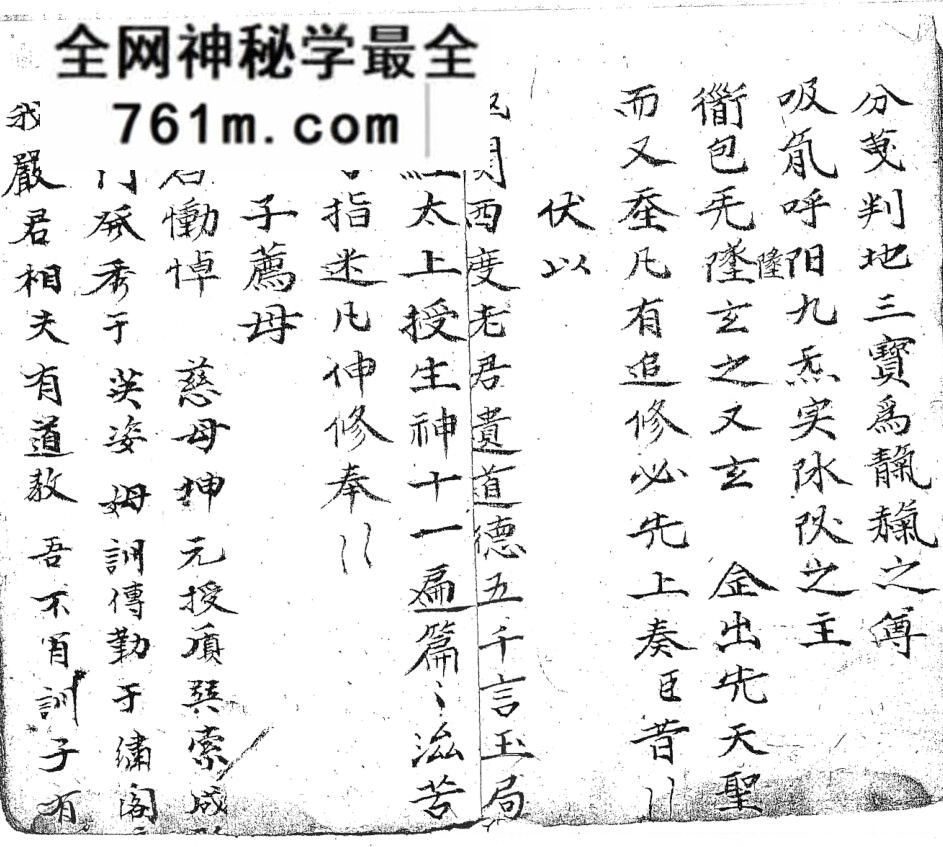 全网神秘学最全
761m.com
分判地三寶爲之尊
吸呼阳九炁实之主
衟包无隆玄之又玄 金出先天聖
隆
而又在凡有追修必先上奏臣昔〃
伏以
西度老君遺道德五千言玉局
太上授生神十一遍篇〻治苦
指迷凡伸修奉〃
子薦母
慟悼 慈母坤元授質巽索成
門發秀于英姿姆訓傳勤于繡阁
我嚴君相夫有道教吾不肖訓子有